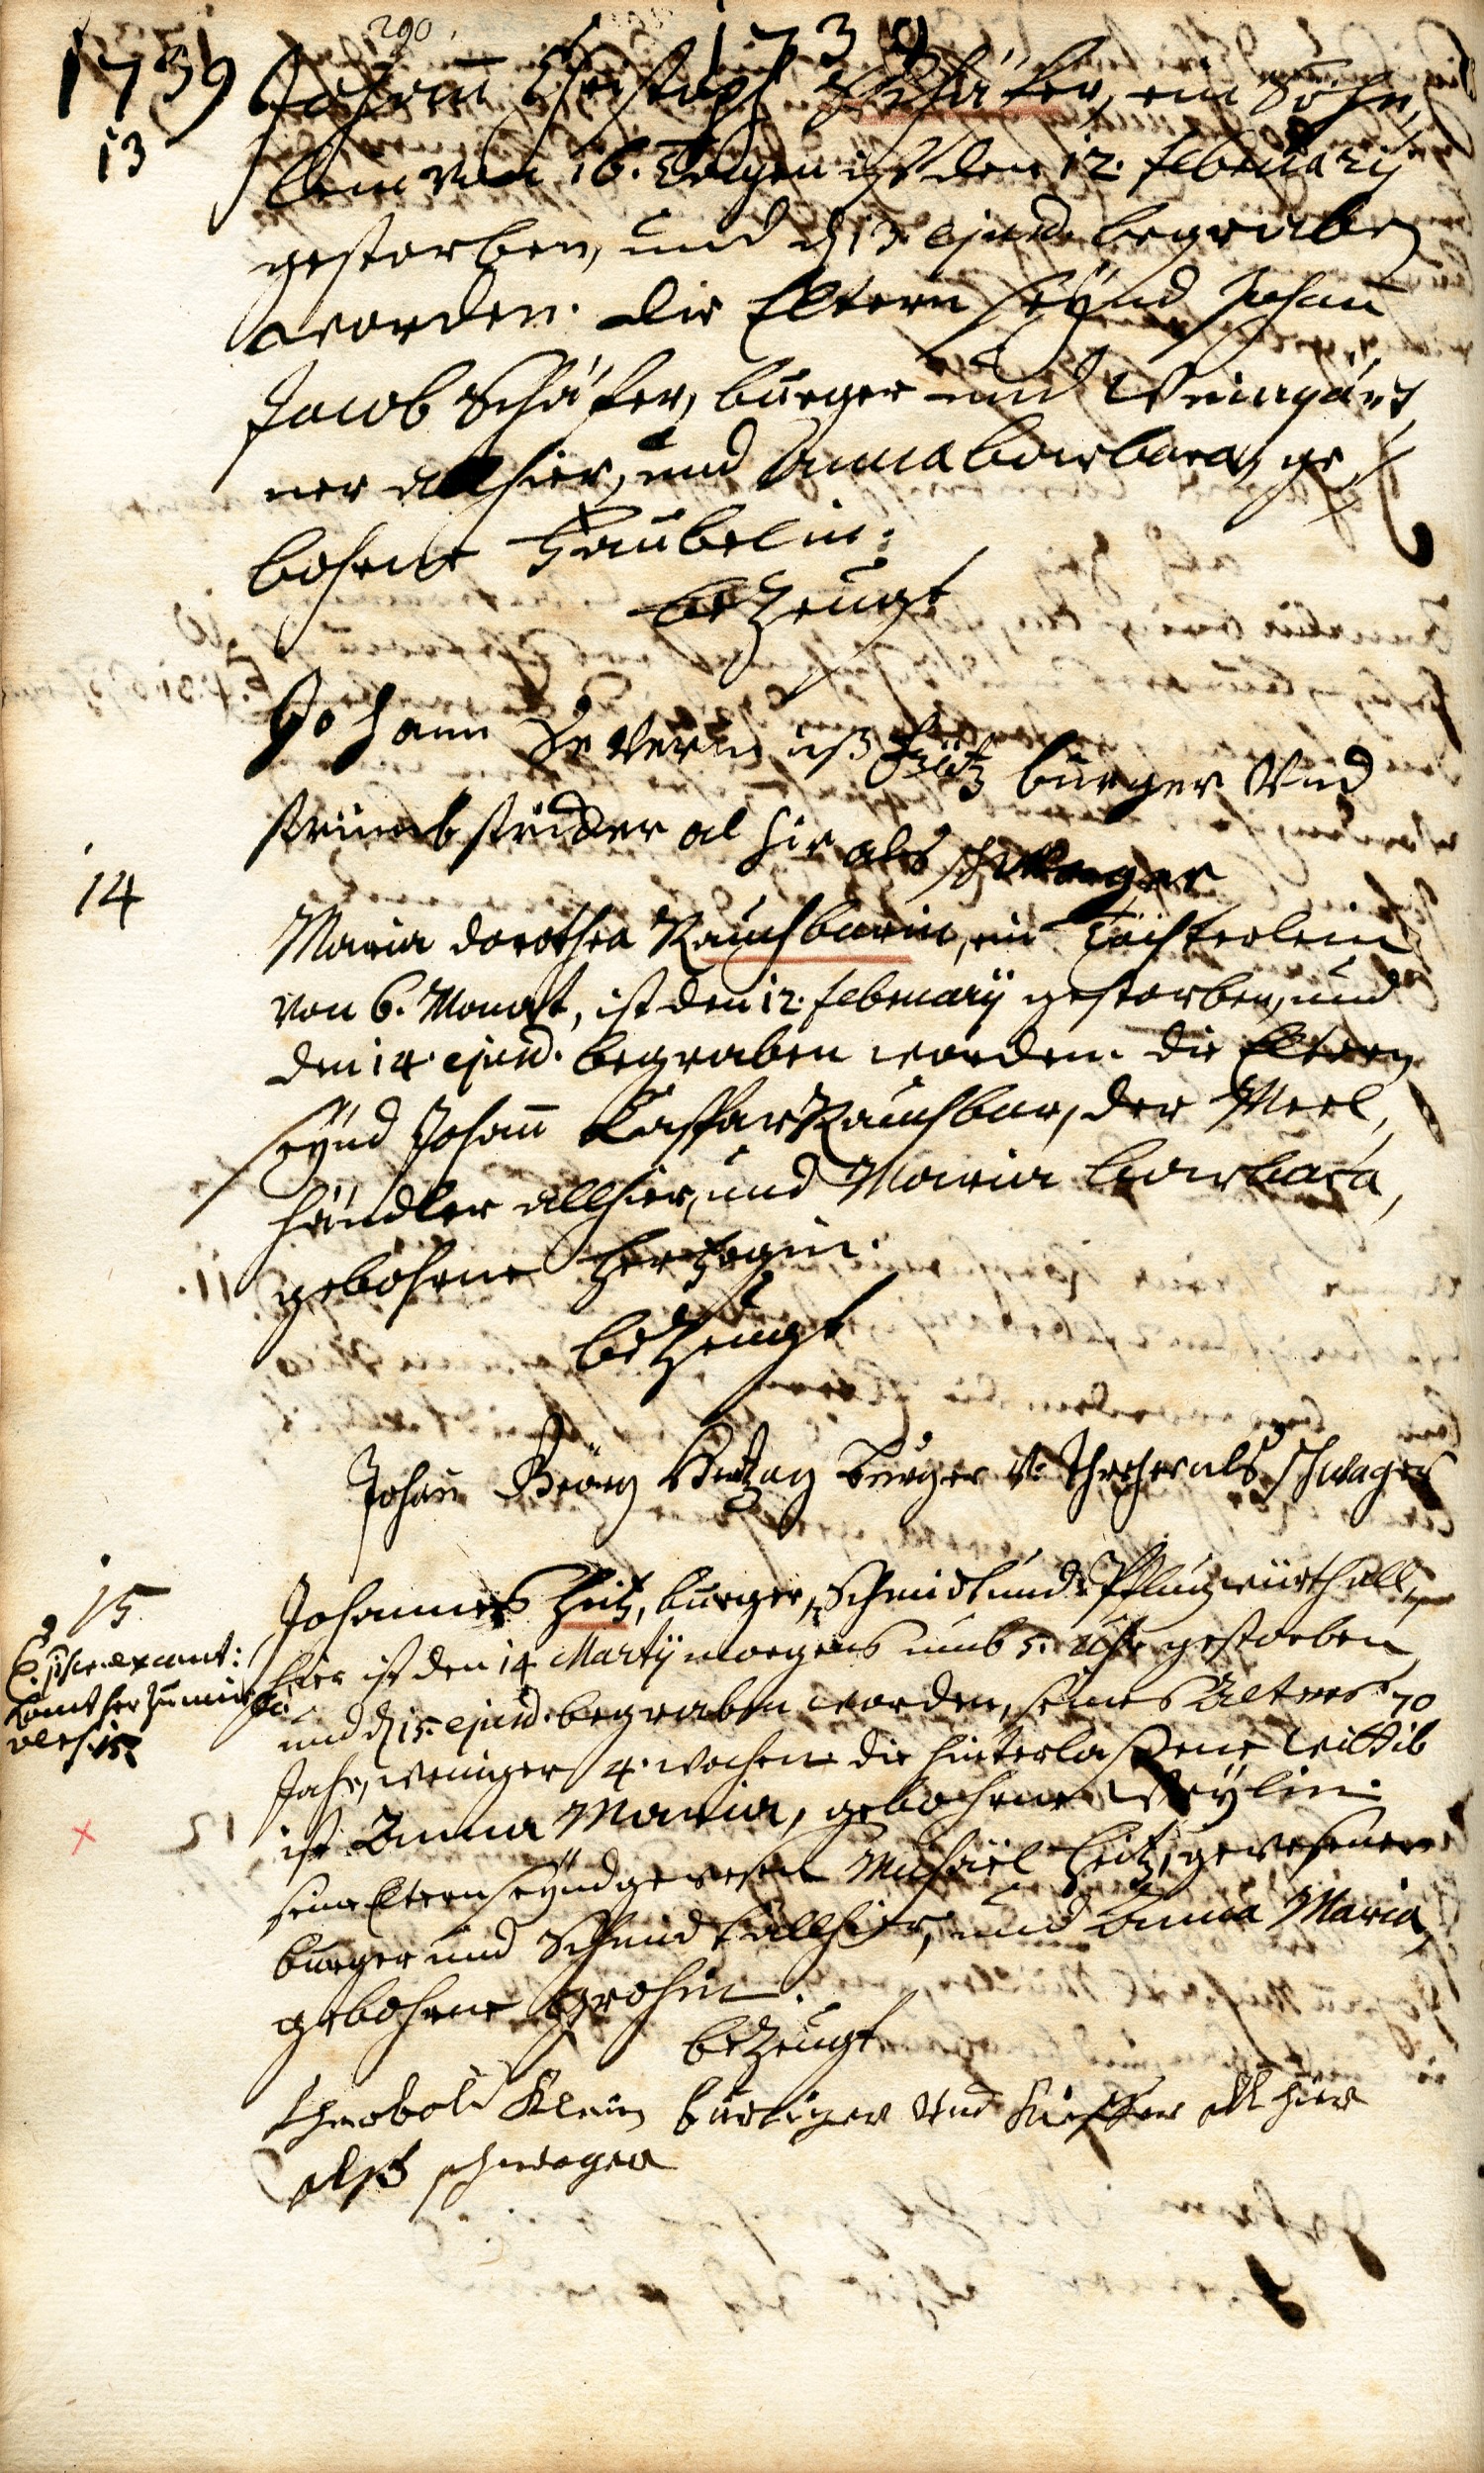 290.
1739 1739
13
Johann Christoph Schäfer, ein Söhn,
lein von 16. Tagen ist den 12. februarij
gestorben, und d 13. ejusd. begraben
worden. die Eltern seÿnd Johann
Jacob Schäfer, burger und Weingärt,
ner allhier, und Anna barbara, ge,
bohrne Häubelin.
bezeugt
Johann burger Vnd
al hir als schwager
14
Maria dorothea Rauschbarin, ein Töchterlein
von 6. Monat, ist den 12. februarij gestorben, und
den 14. ejusd. begraben worden. die Eltern
seÿnd Johann Casspar Rauschbar, der Meel,
händler allhier, und Maria barbara,
gebohrne Herzogin.
bezeugt
Johan Georg Hertzog burger v. als schwager
15
Johannes Heitz, burger, Schmidt und Pflugwürth all,
hier ist den 14 Martij morgens umb 5. Uhr gestorben
und d 15. ejusd. begraben worden, seines Alters 70
Jahr, weniger 4. wochen die hinterlaßene wittib
ist Anna Maria, gebohrne Weÿlin.
seine Eltern seÿnd gewesen Michaël Heitz, gewesener
burger und Schmidt allhier, und Anna Maria,
gebohrne Grohin.
bezeugt
theobolt Klein burger Vnd kieffer all hier
alß schwager